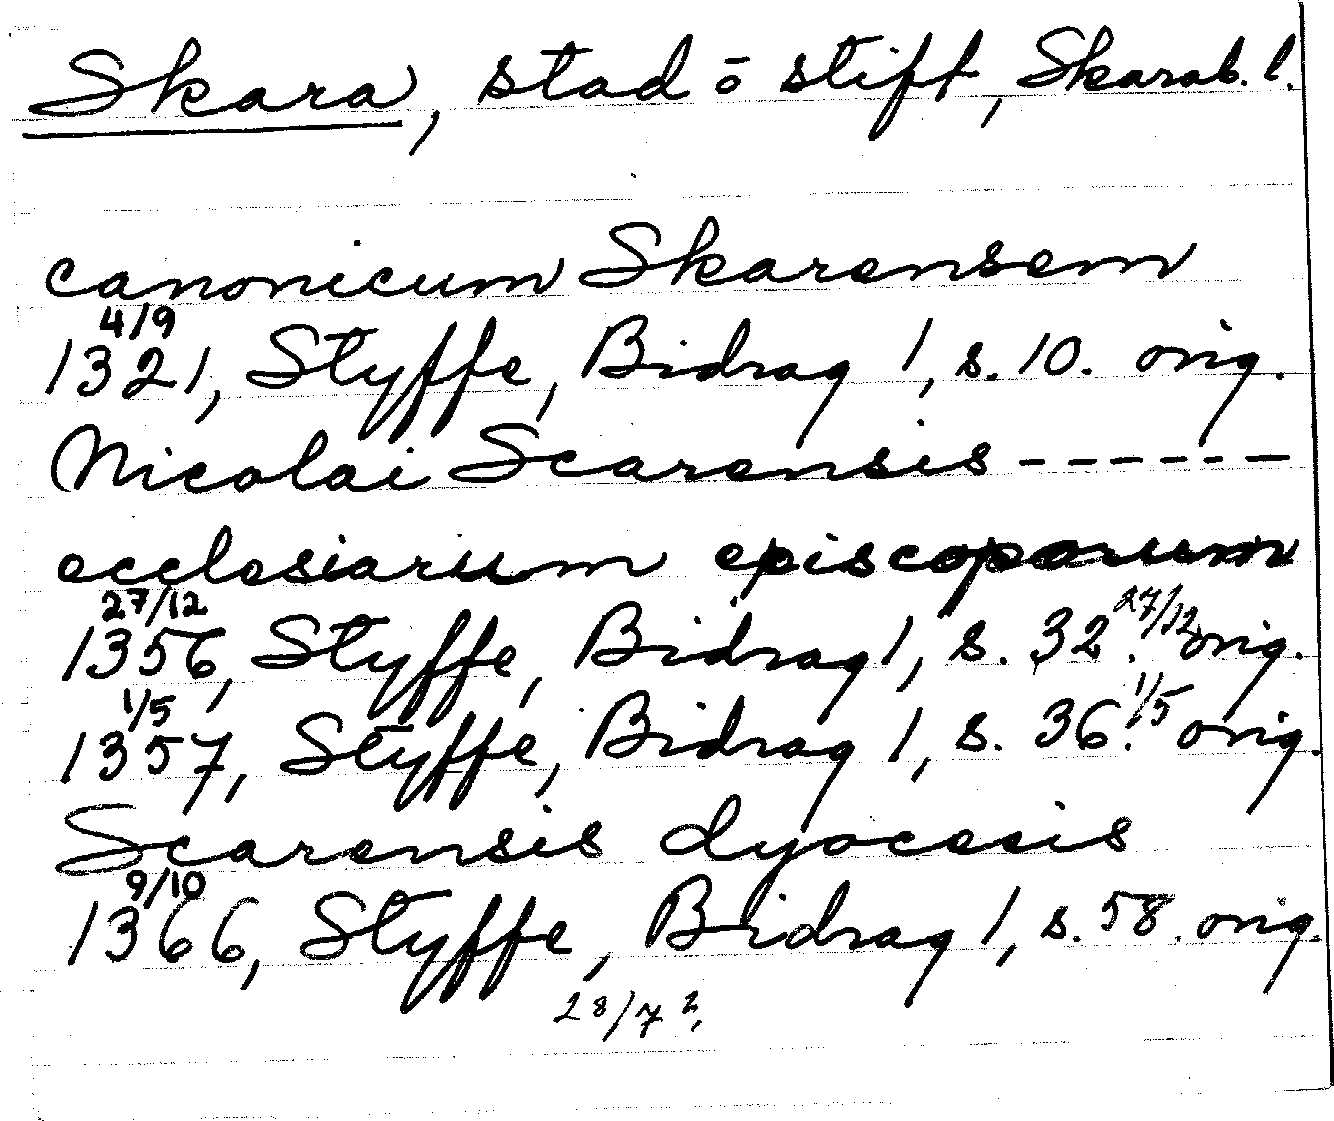 Skara, stad ō stift, Skarab. l.
canonicum Skarensem
4/9
1321, Styffe, Bidrag 1, s. 10. orig.
Nicolai Scarensis ------
ecclesiarum episcoporum
27/12
1356, Styffe, Bidrag 1, s. 32. 27/12 orig.
1/5
1357, Styffe, Bidrag 1, s. 36. 1/5 orig.
Scarensis dyocesis
9/10
1366, Styffe, Bidrag 1, s. 58. orig.
28/7 2,